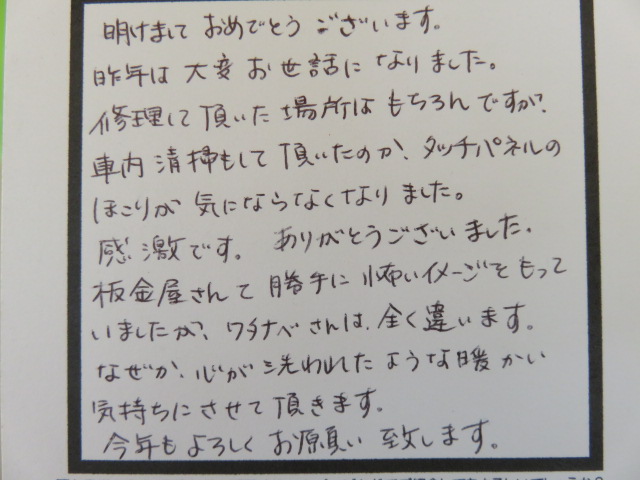 明けまして おめでとう ございます。
昨年は 大変 お世話に なりました。
修理して 頂いた 場所は もちろん ですが、
車内 清掃もして 頂いたのか、タッチパネルの
ほこりが 気にならなくなり ました。
感激です。 ありがとうございました。
板金屋さんて 勝手に 怖いイメージを もって
いましたが、ワタナベさんは、全く違います。
なぜか、心が 洗われた ような 暖かい
気持ちに させて 頂きます。
今年も よろしく お願い 致します。